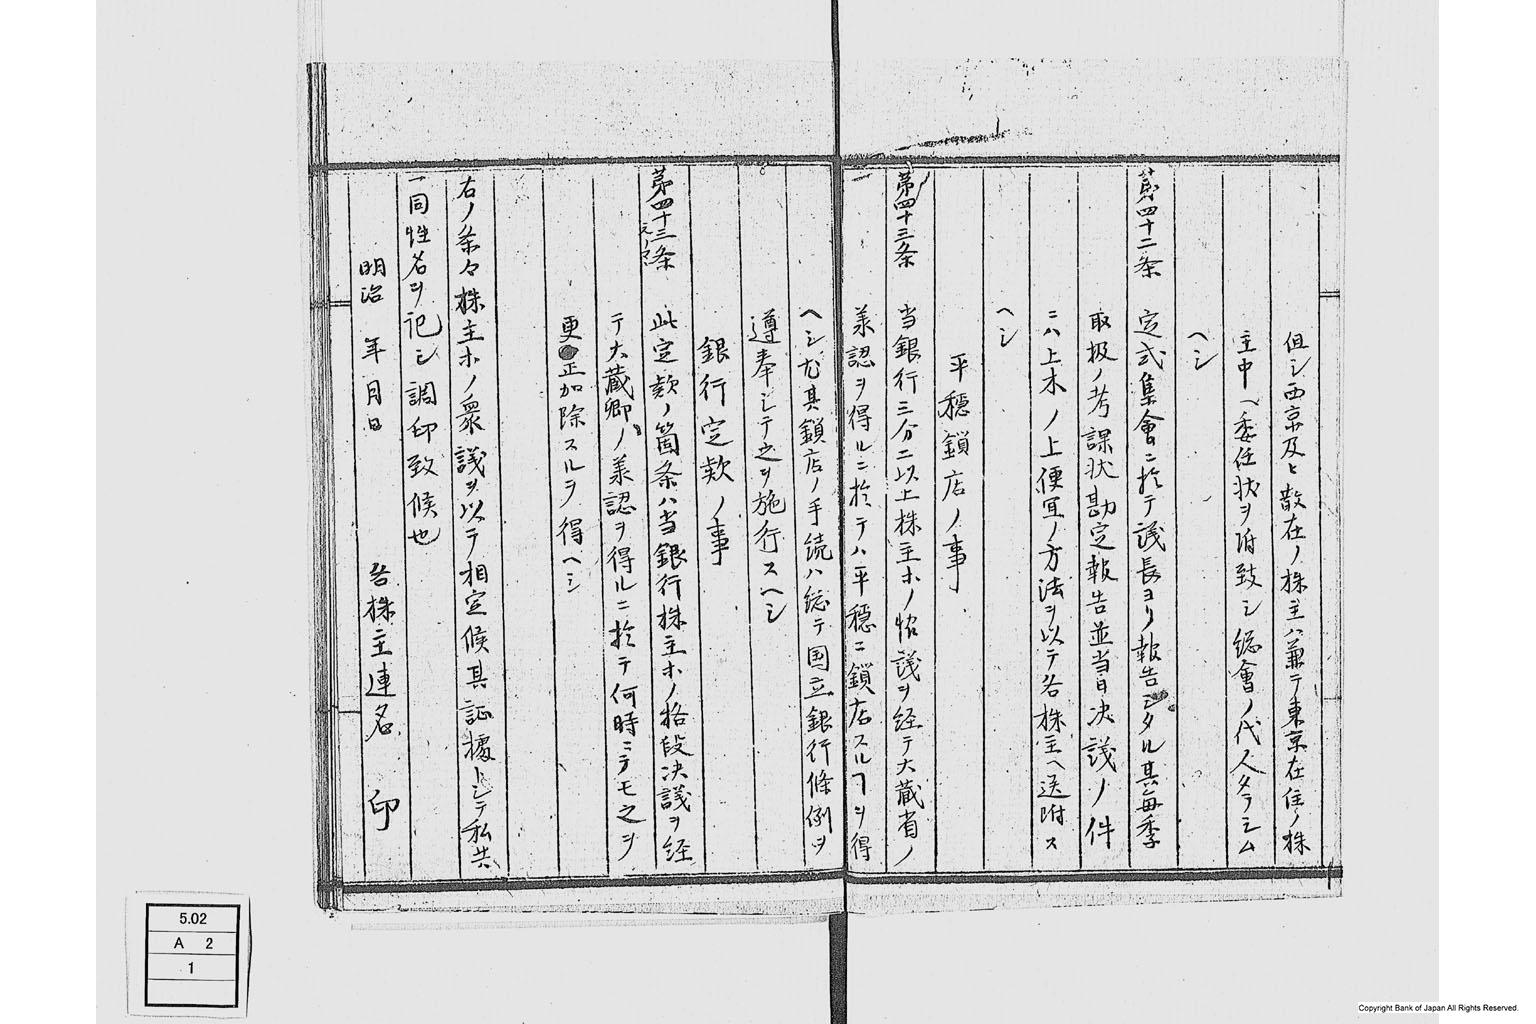 但シ西京及ヒ散在ノ株主ハ兼テ東京在住ノ株
主中ヘ委任状ヲ附致シ総會ノ代人タラシム
ヘシ
第四十二条 定式集會ニ於テ議長ヨリ報告シタル其毎季
取扱ノ考課状勘定報告並当日决議ノ件
ニハ上木ノ上便宜ノ方法ヲ以テ各株主ヘ送附ス
ヘシ
平穏鎖店ノ事
第四十三条 当銀行三分二以上株主ホノ恊議ヲ経テ大蔵省ノ
承認ヲ得ルニ於テハ平穏ニ鎖店スルヿヲ得
ヘシ尤其鎖店ノ手続ハ総テ国立銀行條例ヲ
遵奉シテ之ヲ施行スヘシ
銀行定款ノ事
第四十三条 此定款ノ箇条ハ当銀行株主ホノ格段决議ヲ経
テ大蔵卿ノ承認ヲ得ルニ於テ何時ニテモ之ヲ
更正加除スルヲ得ヘシ
右ノ条々株主ホノ衆議ヲ以テ相定候其証據トシテ私共
一同姓名ヲ記シ調印致候也
明治 年 月 日 各株主連名 印
5.02
A 2
1
Copyright Bank of Japan All Rights Reserved.